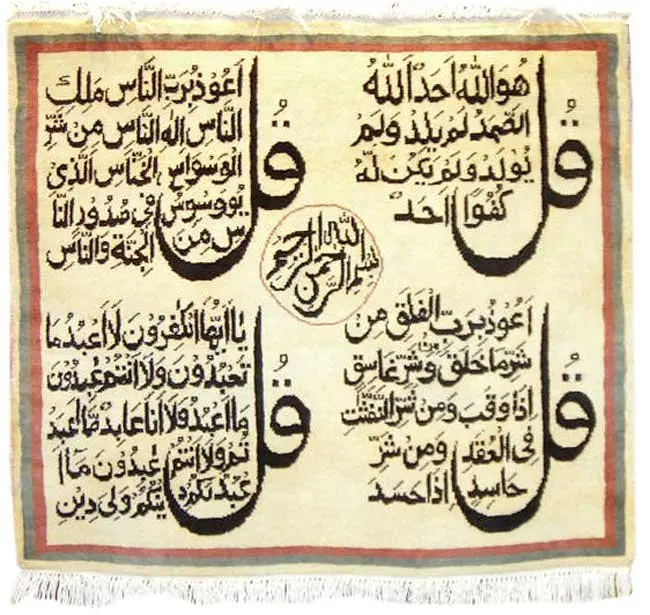 قُل
هُوَ اللّٰهُ اَحَدٌ اَللّٰهُ
الصَّمَدُ لَمْ يَلِدْ وَلَمْ
يُولَدْ وَلَمْ يَكُنْ لَّهُ
كُفُوًا اَحَدٌ
قُل
اَعُوْذُ بِرَبِّ النَّاسِ مَلِكِ
النَّاسِ اِلٰهِ النَّاسِ مِنْ شَرِّ
الْوَسْوَاسِ الْخَنَّاسِ الَّذِى
يووسوس فِى صُدُوْرِ النَّا
سِ مِنَ الْجِنَّةِ وَالنَّاسِ
بِسْمِ اللّٰهِ الرَّحْمٰنِ الرَّحِيْمِ
قُل
اَعُوْذُ بِرَبِّ الْفَلَقِ مِنْ
شَرِّ مَا خَلَقَ وَمِنْ شَرِّ غَاسِقٍ
اِذَا وَقَبَ وَمِنْ شَرِّ النَّفّٰثٰتِ
فِى الْعُقَدِ وَمِنْ شَرِّ
حَاسِدٍ اِذَا حَسَدَ
قُل
يَا اَيُّهَا الْكٰفِرُونَ لَا اَعْبُدُ مَا
تَعْبُدُوْنَ وَلَا اَنْتُمْ عٰبِدُوْنَ
مَا اَعْبُدُ وَلَا اَنَا عَابِدٌ مَّا عَبَد
تُّمْ وَلَا اَنْتُمْ عٰبِدُوْنَ مَا ا
عْبُدُ لَكُمْ دِيْنُكُمْ وَلِىَ دِيْنِ